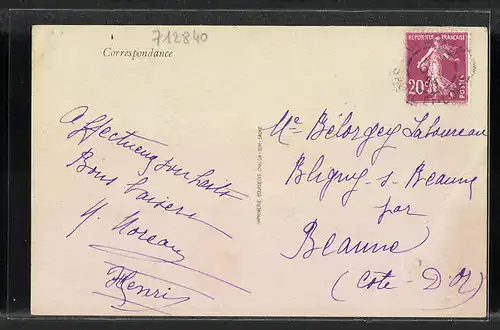 712840
Correspondance
REPUBLIQUE FRANÇAISE
20c
POSTES
Affectueux souhaits
Bons baisers
H. Moreau
Henri
IMPRIMERIE BOURGEOIS, CHALON-SUR-SAONE
Me Bélorgey Laboureau
Bligny-s-Beaune
par
Beaune
(Cote-D'Or)